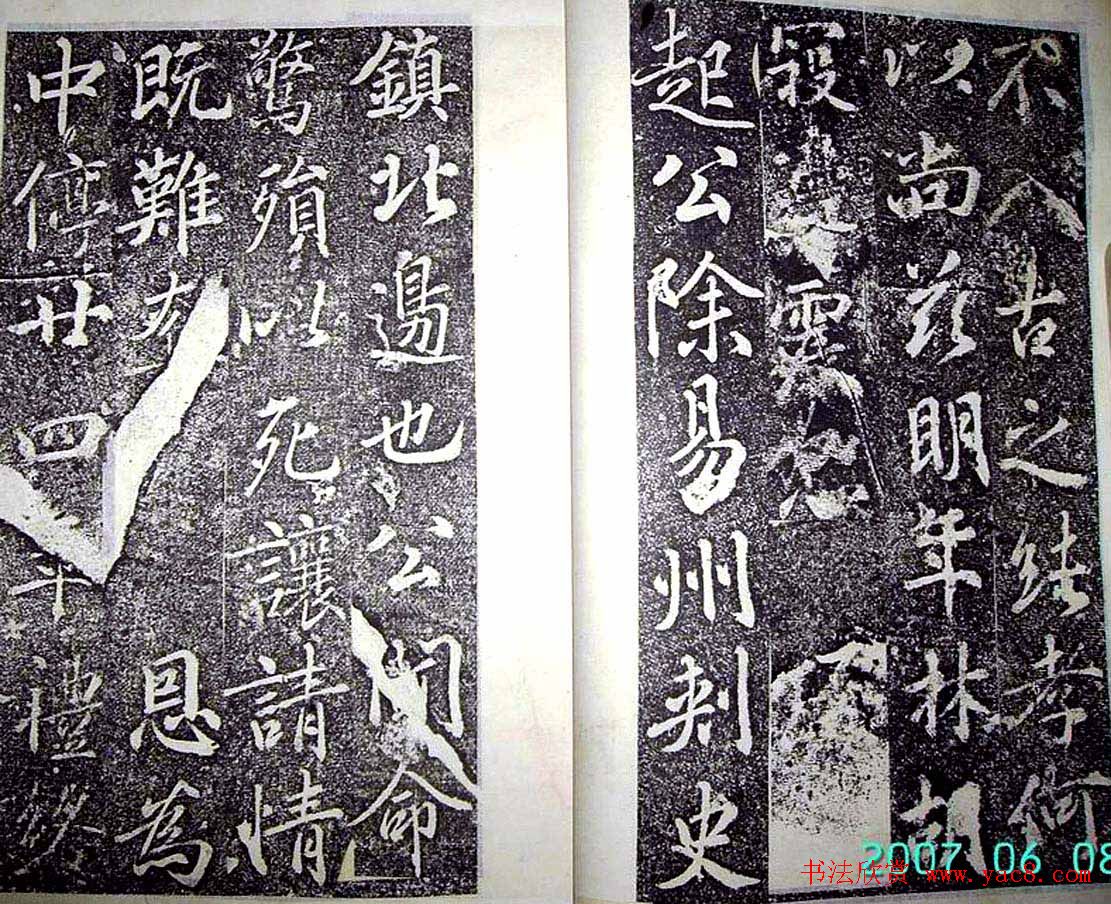 不入古之純孝何
以尚茲明年林胡
寇
起公除易州刺史
鎮北邊也公聞命
驚殞以死讓請情
既難奪 恩爲
中停廿四年禮終
2007 06 08
书法欣赏 www.yac8.com